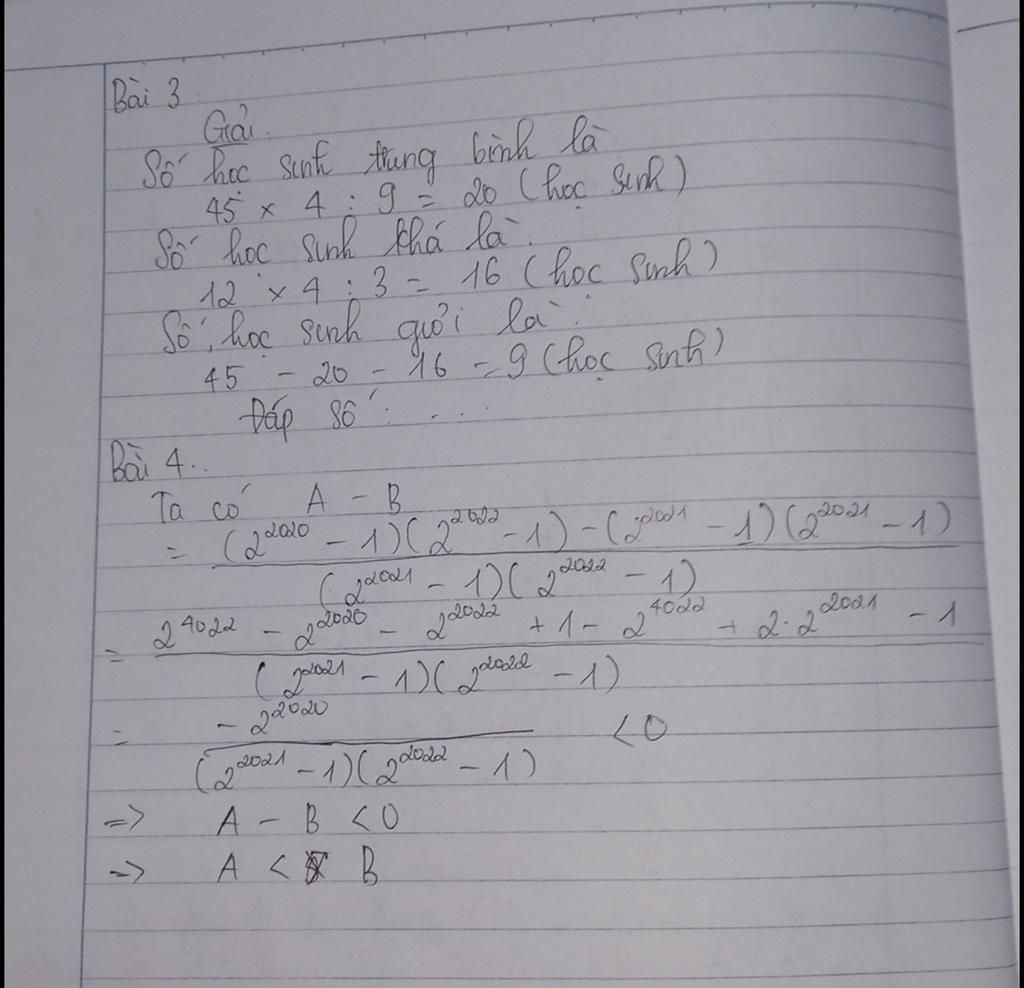 Bài 3
Giải.
Số học sinh trung bình là
45 × 4 : 9 = 20 (học sinh)
Số học sinh khá là:
12 × 4 : 3 = 16 (học sinh)
Số học sinh giỏi là:
45 - 20 - 16 = 9 (học sinh)
Đáp số: ....
Bài 4..
Ta có A - B
= (2^2020 - 1)(2^2022 - 1) - (2^2021 - 1)(2^2021 - 1)
(2^2021 - 1)(2^2022 - 1)
= 2^4022 - 2^2020 - 2^2022 + 1 - 2^4022 + 2.2^2021 - 1
(2^2021 - 1)(2^2022 - 1)
= - 2^2020 < 0
(2^2021 - 1)(2^2022 - 1)
=> A - B < 0
=> A < B